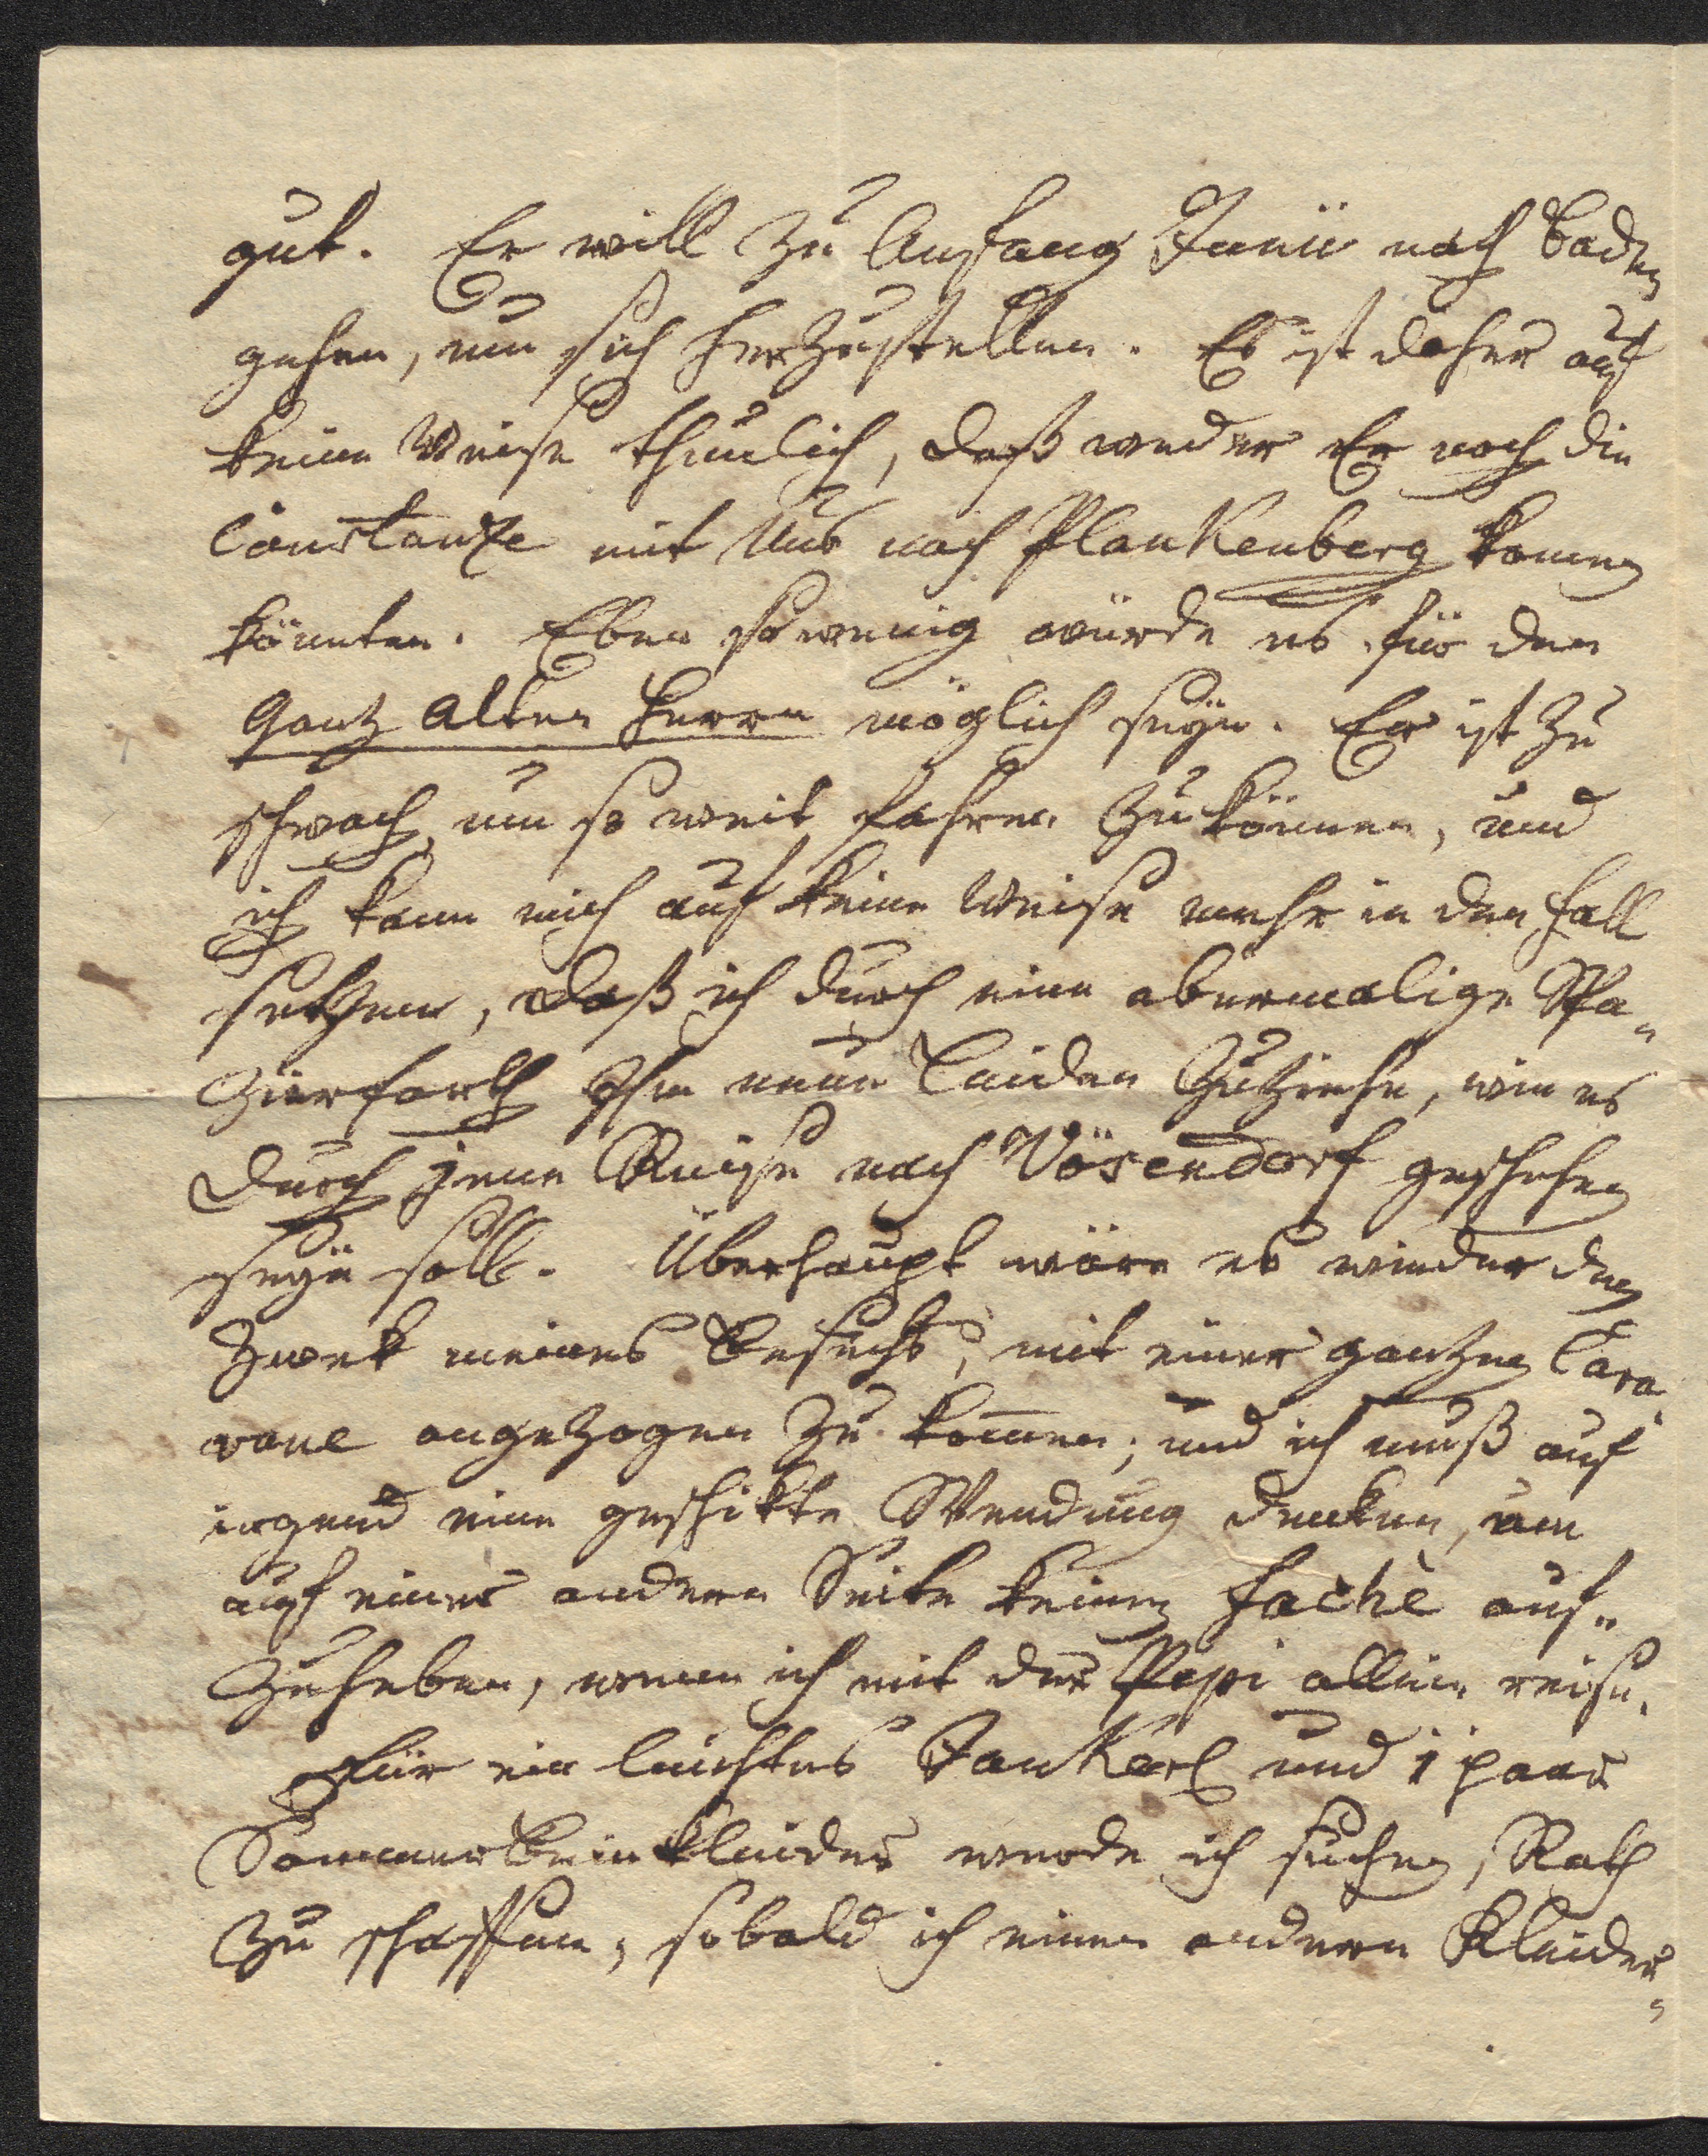 gut. Er will zu Anfang Junii nach Baden
gehen, um sich herzustellen. Es ist daher auf
keine Weise thunlich, daß weder Er noch die
Constanze mit Uns nach Plankenberg komen
könnten. Eben so wenig würde es für den
Ganz alten Herrn möglich seyn. Er ist zu
schwach, um so weit fahren zu können, und
ich kann mich auf keine Weise mehr in den Fall
setzen, daß ich durch eine abermalige Spa„
zierfarth Ihm neue Leiden zuziehe, wie es
durch jene Reise nach Vösendorf geschehen
seyn soll. Überhaupt wäre es wieder den
Zwek meines Besuchs, mit einer ganzen Cara„
vane angezogen zu kom̄en; und ich muß auf
irgend eine geschikte Wendung denken, um
auf einer andern Seite keinen fachè auf„
zuheben, wenn ich mit der Pepi allein reise.
Für ein leichtes Jankerl und 1 paar
Sommerbeinkleider werde ich suchen, Rath
zu schaffen, sobald ich einen andern Kleider„